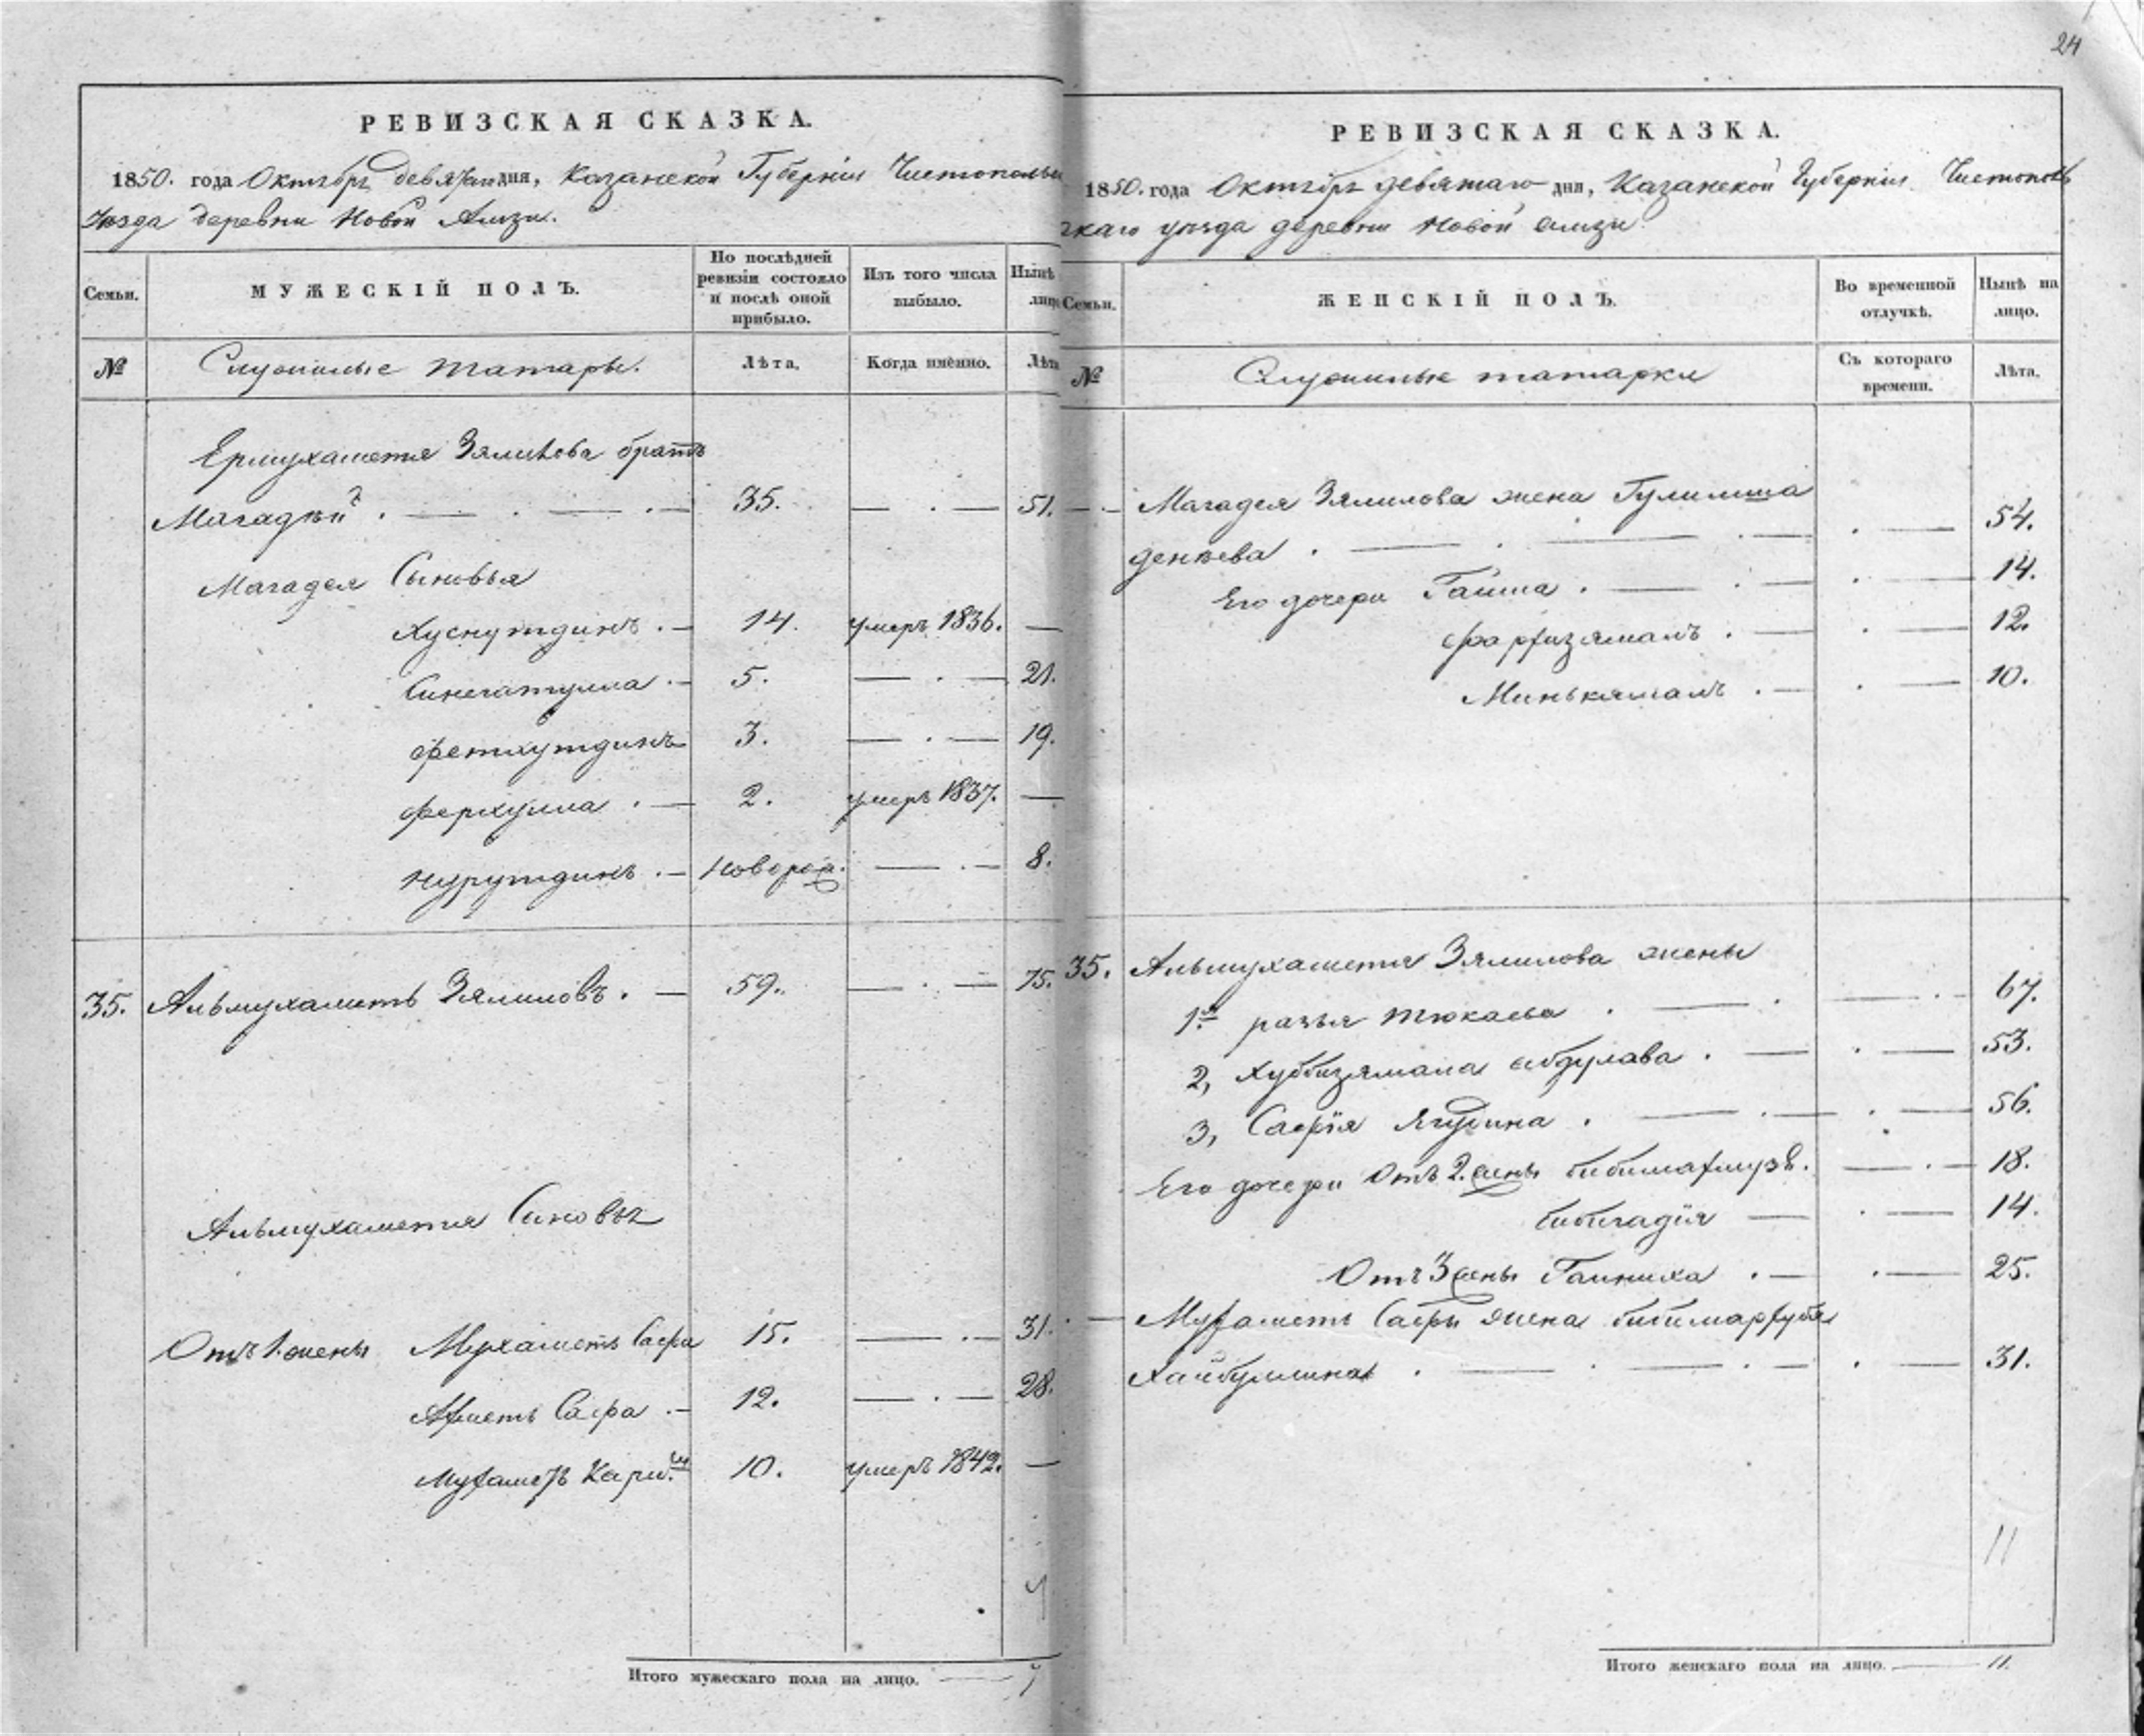 РЕВИЗСКАЯ СКАЗКА.
1850. года Октября девятаго дня, Казанской Губернiи Чистополь
Уѣзда деревни Новой Амзи.
Семьи.
МУЖЕСКIЙ ПОЛЪ.
По послѣдней ревизiи состояло и послѣ оной прибыло.
Изъ того числа выбыло.
Нынѣ лицо
№
Служилые татары.
Лѣта.
Когда именно.
Лѣта
Ермухаметя Зялилова братъ
Магадѣй . — . — . — 35. — . — 51.
Магадея Сыновья
Хуснутдинъ . — 14. умеръ 1836. —
Синегатулла . — 5. — . — 21.
Фетхутдинъ 3. — . — 19.
Ферхулла . — 2. умеръ 1837. —
Нурутдинъ . — новорож. — . — 8.
35. Альмухаметь Зялиловъ . — 59. — . — 75.
Альмухаметя Сыновья
Отъ 1. жены Мухаметь Сафа 15. — . — 31.
Ахметь Сафа . — 12. — . — 28.
Мухаметь Кари 10. умеръ 1842. —
7
Итого мужескаго пола на лицо. — 7
24
РЕВИЗСКАЯ СКАЗКА.
1850. года Октября девятаго дня, Казанской Губернiи Чистополь
скаго уѣзда деревни Новой Амзи
Семьи.
ЖЕНСКIЙ ПОЛЪ.
Во временной отлучкѣ.
Нынѣ на лицо.
№
Служилые татарки
Съ котораго времени.
Лѣта.
Магадея Зялилова жена Гулимша
денѣева . — . — . — . — 54.
Его дочери Гайша . — . — . — 14.
Фархизямалъ . — . — 12.
Минькямалъ . — . — 10.
35. Альмухаметя Зялилова жены
1я разья Тюкаева . — . — . — 67.
2, Хуббизямала Абдулава . — . — 53.
3, Сафiя Ягудина . — . — . — 56.
Его дочери Отъ 2. жены . — . — 18.
Бибигадiя — . — 14.
Отъ 3 жены Гайниха . — . — 25.
Мухаметь Сафы жена
Хайбуллина . — . — . — . — 31.
11
Итого женскаго пола на лицо. — 11.